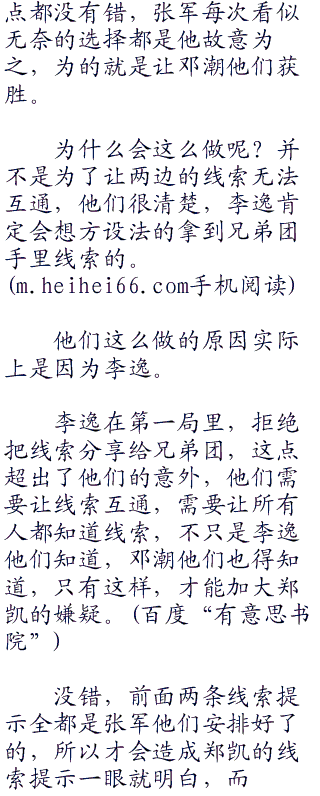 点都没有错，张军每次看似
无奈的选择都是他故意为
之，为的就是让邓潮他们获
胜。
为什么会这么做呢？并
不是为了让两边的线索无法
互通，他们很清楚，李逸肯
定会想方设法的拿到兄弟团
手里线索的。
(m.heihei66.com手机阅读)
他们这么做的原因实际
上是因为李逸。
李逸在第一局里，拒绝
把线索分享给兄弟团，这点
超出了他们的意外，他们需
要让线索互通，需要让所有
人都知道线索，不只是李逸
他们知道，邓潮他们也得知
道，只有这样，才能加大郑
凯的嫌疑。(百度“有意思书
院”)
没错，前面两条线索提
示全都是张军他们安排好了
的，所以才会造成郑凯的线
索提示一眼就明白，而